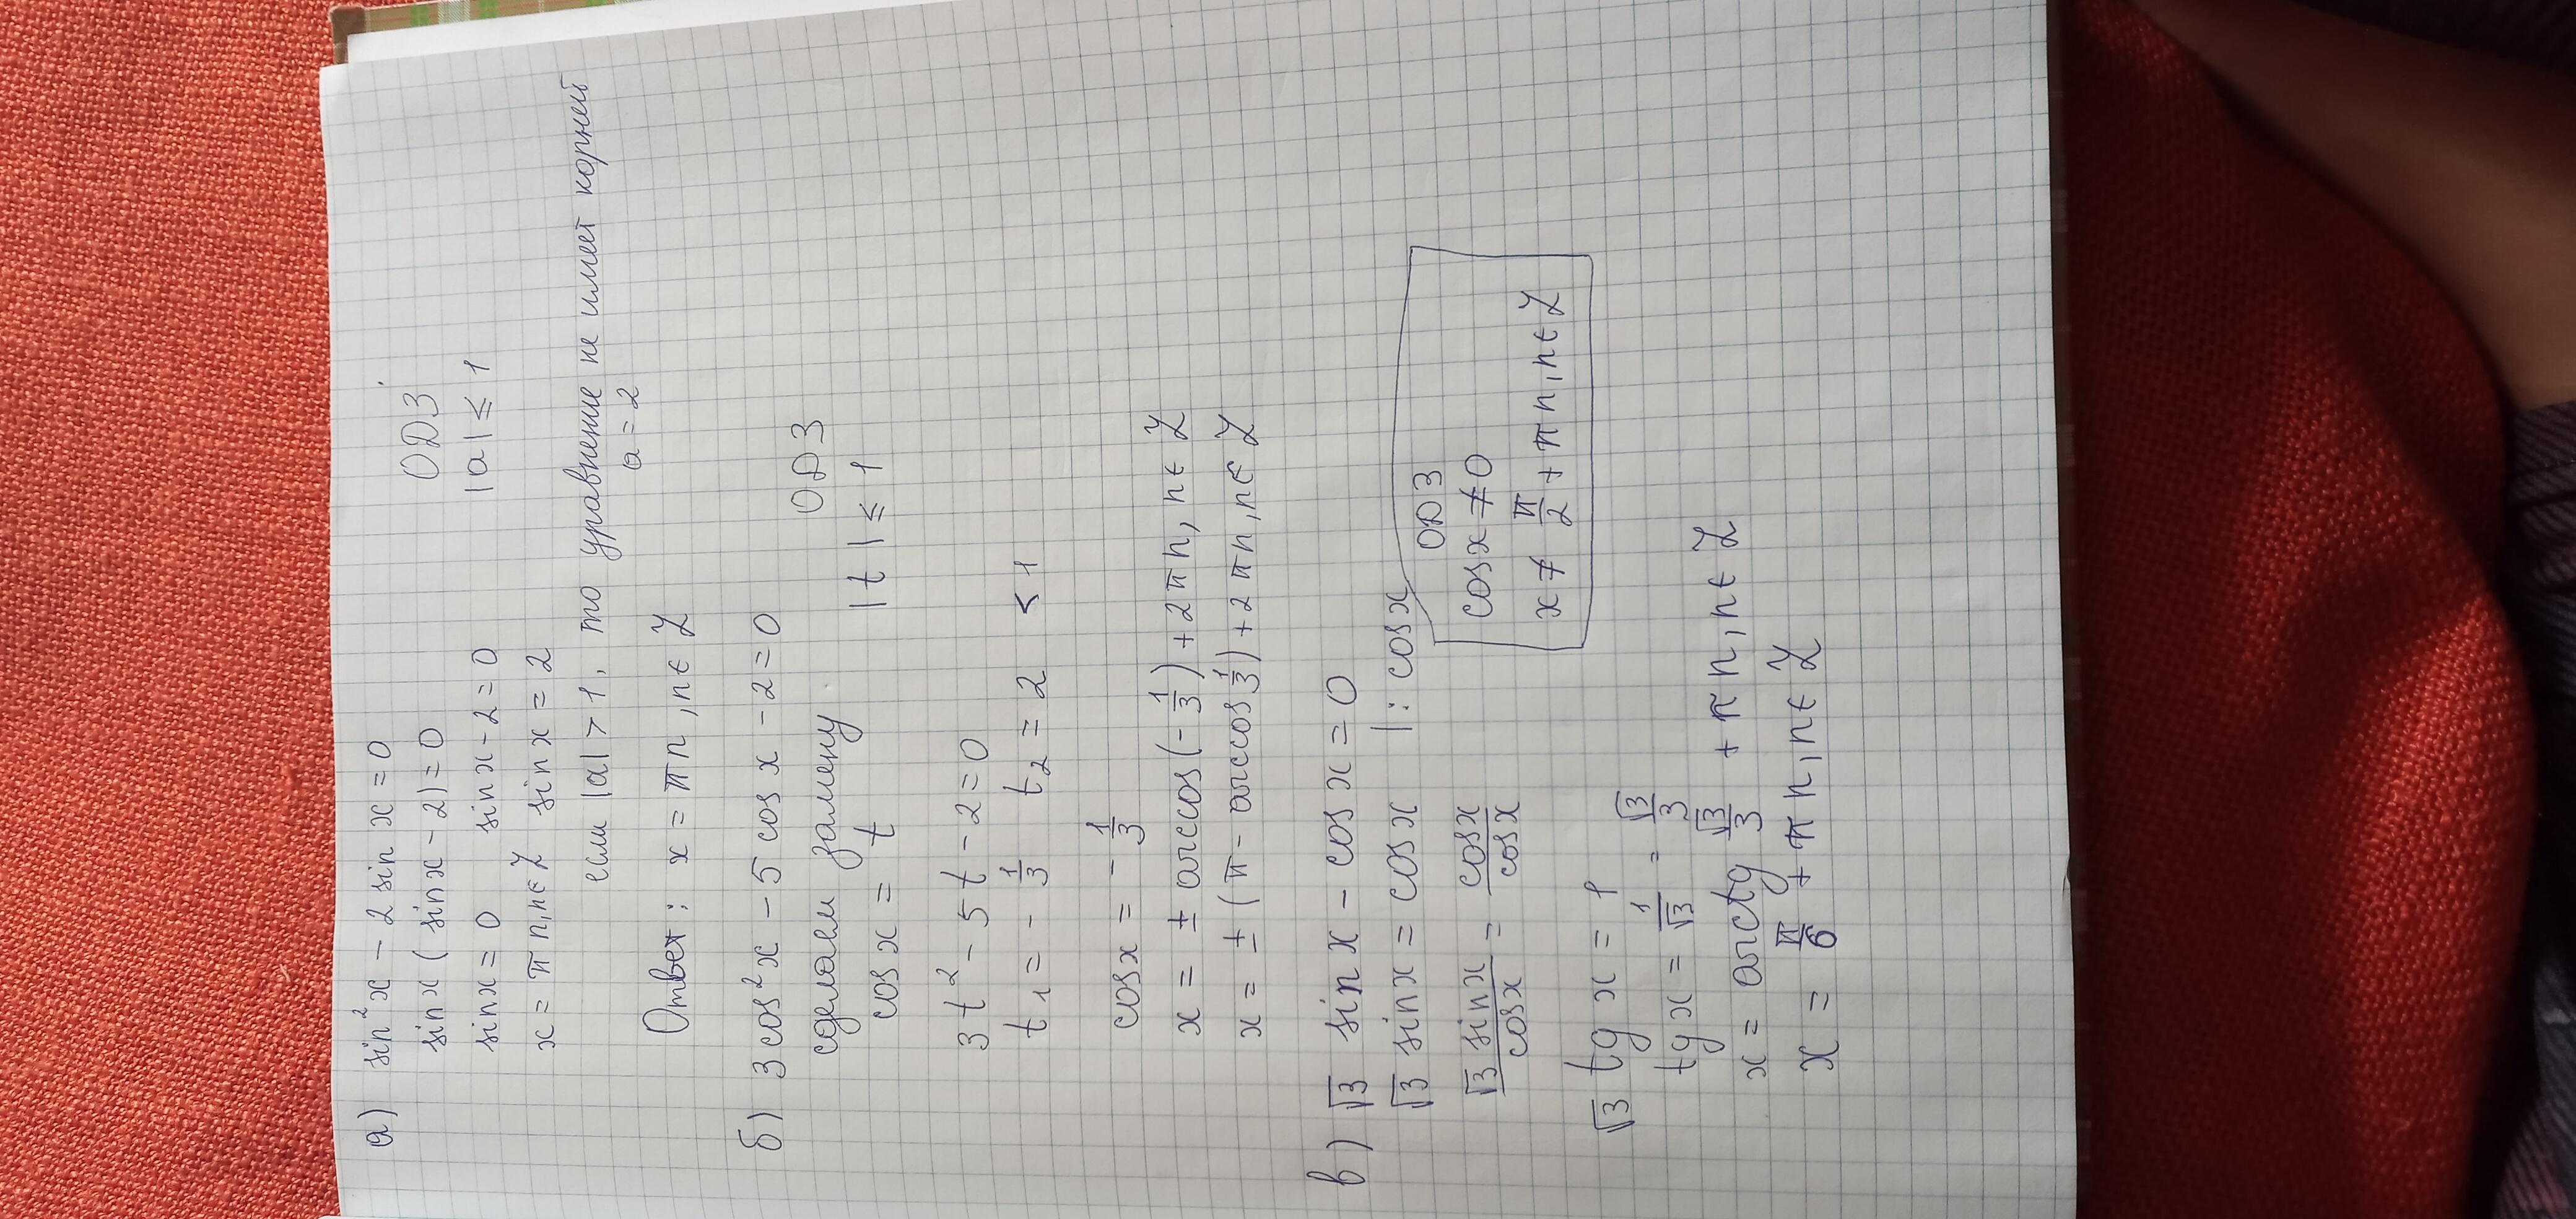 а) sin²x − 2 sin x = 0
ОДЗ
sin x ( sin x − 2) = 0
|a| ≤ 1
sin x = 0   sin x − 2 = 0
x = πn, n ∈ Z   sin x = 2
если |a| > 1, то уравнение не имеет корней
a = 2
Ответ: x = πn, n ∈ Z
б) 3 cos²x − 5 cos x − 2 = 0
сделаем замену
ОДЗ
cos x = t
|t| ≤ 1
3t² − 5t − 2 = 0
t₁ = − 1/3   t₂ = 2   < 1
cos x = − 1/3
x = ± arccos (− 1/3) + 2πn, n ∈ Z
x = ± (π − arccos 1/3) + 2πn, n ∈ Z
в) √3 sin x − cos x = 0
√3 sin x = cos x   | : cos x
ОДЗ
√3 sin x / cos x = cos x / cos x
cos x ≠ 0
x ≠ π/2 + πn, n ∈ Z
√3 tg x = 1
tg x = 1/√3 = √3/3
x = arctg √3/3 + πn, n ∈ Z
x = π/6 + πn, n ∈ Z